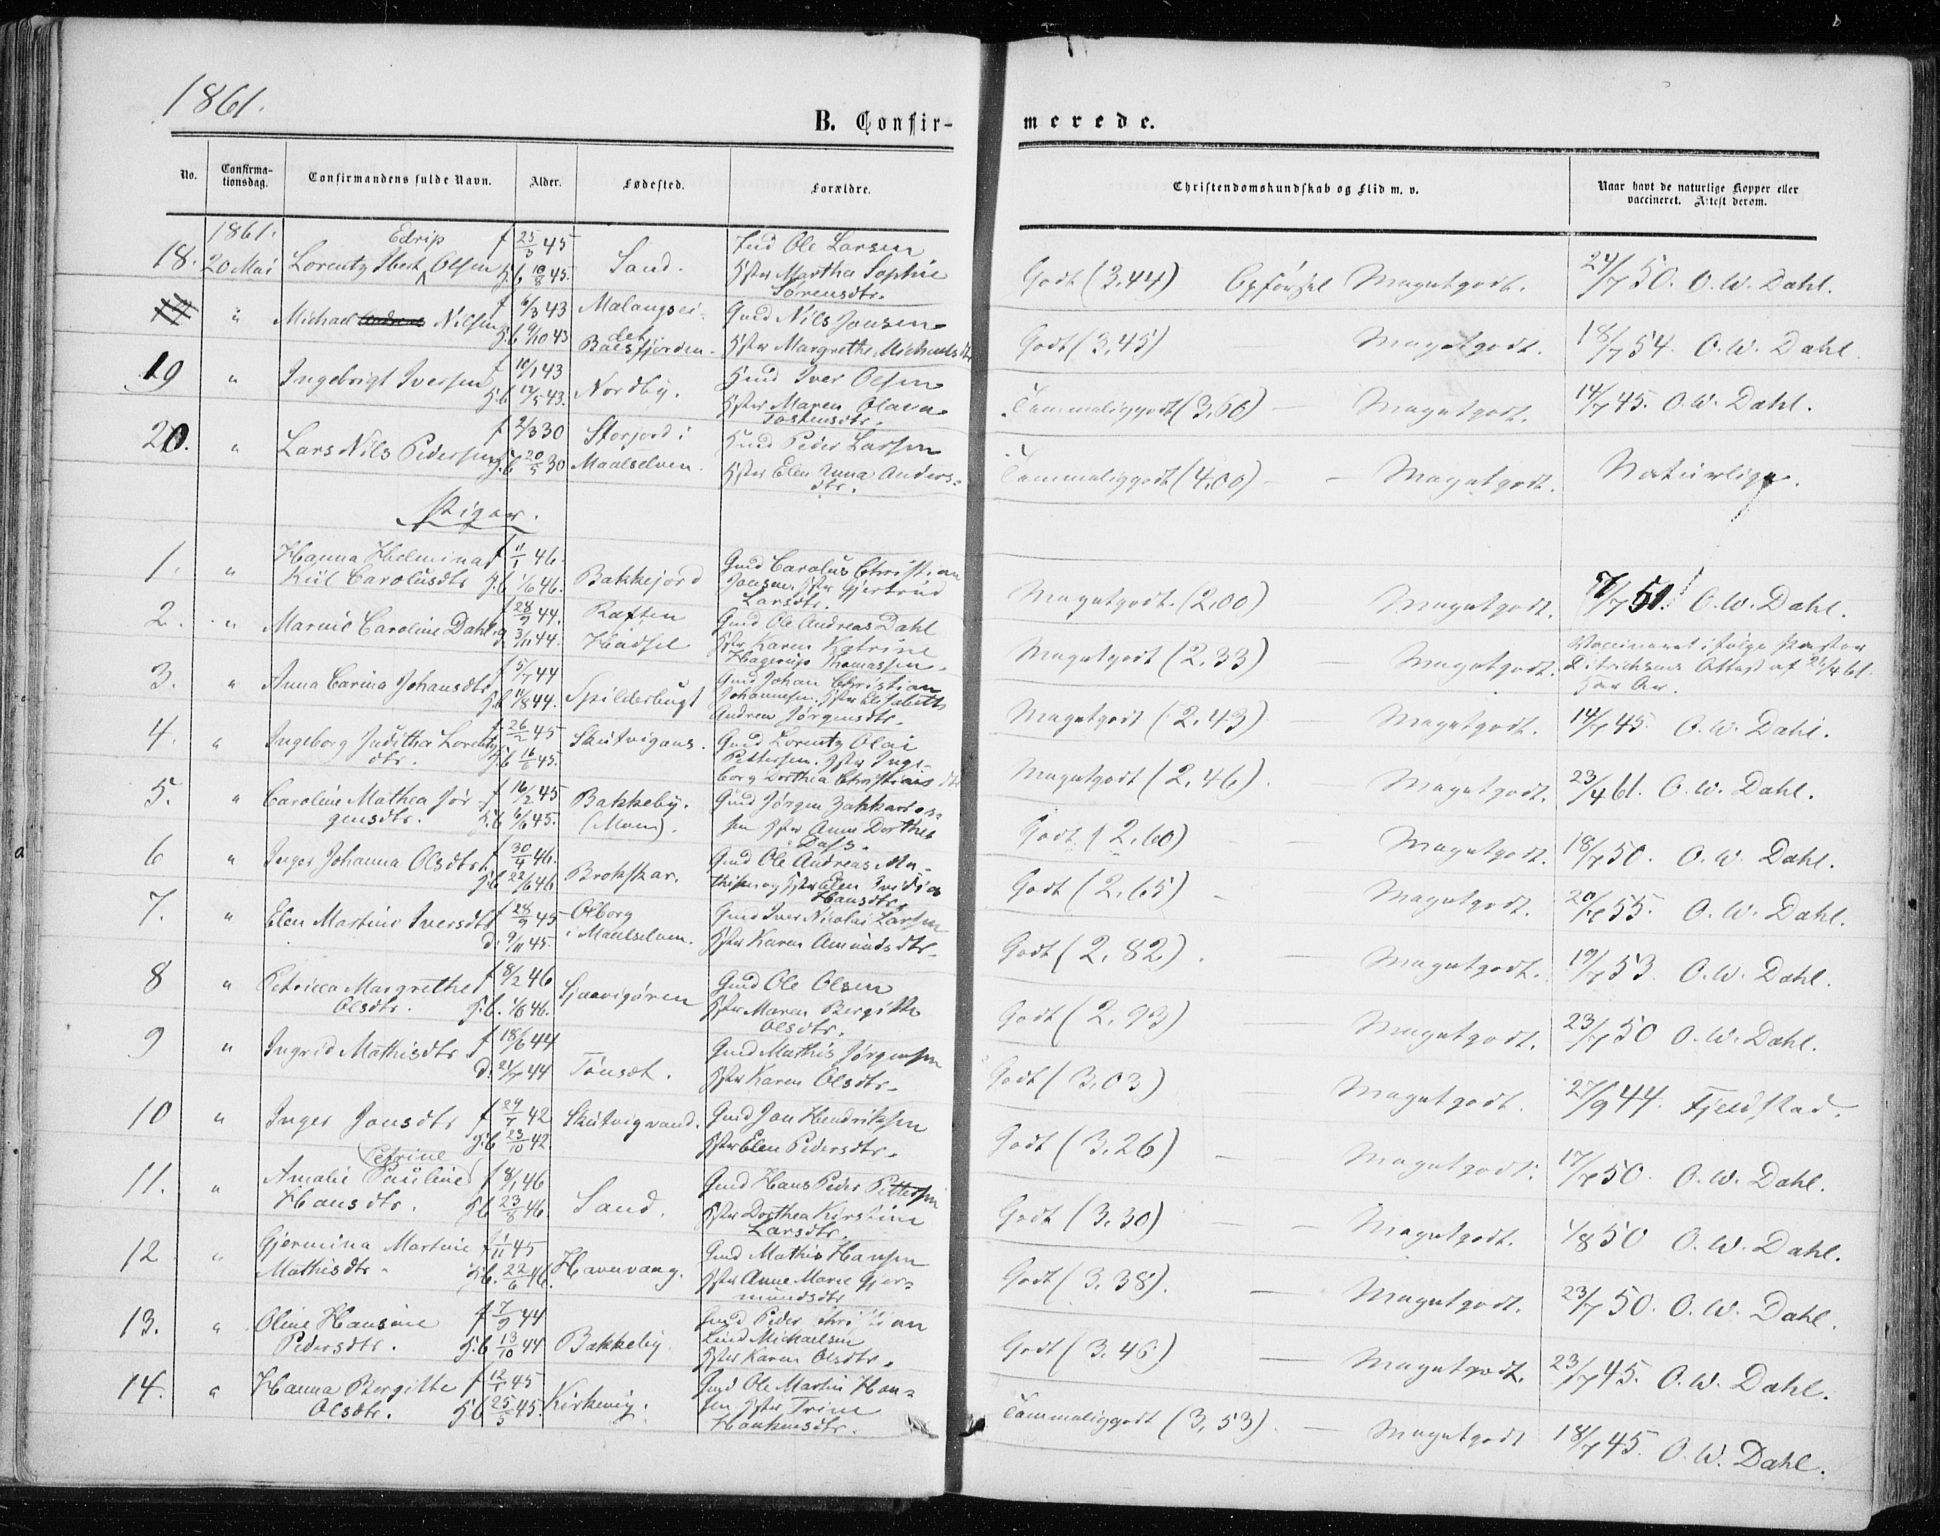 1861.
B. Confir-
merede.
No.
Confirma-
tionsdag.
Confirmandens fulde Navn.
Alder.
Fødested.
Forældre.
Christendomskundskab og Flid m. v.
Naar havt de naturlige Kopper eller
vaccineret. Attest derom.
1861. Edrip f 25/3 45 Gmd Ole Larsen
18. 20 Mai Lorentz Olsen 10/8 45. Sand. Hstr Martha Sophie
Sørensdtr.
Godt (3,44) Opførsel Megetgodt. 24/7 50. O. W. Dahl.
" Michael Nilsen f 6/3 43 Malangsei- Gmd Nils Jonsen
9/10 43 det Balsfjorden. Hstr Margrethe Michaelsdtr
Godt (3,45) Megetgodt. 18/7 54. O. W. Dahl.
19 " Ingebrigt Iversen f 10/1 43 Nordby. Gmd Iver Olsen
17/5 43. Hstr Maren Olava
Tostensdtr.
Tammeliggodt (3,60) — Megetgodt. 14/7 45. O. W. Dahl.
20. " Lars Nils Pedersen f 2/3 30 Storjord i Gmd Peder Larsen
20/5 30 Maalselven. Hstr Elen Anna Anders-
dtr.
Tammeliggodt (4,00) — Megetgodt. Naturlige.
Piger.
1. " Hanna Helmina f 11/1 46. Gmd Carolus Christian
Kiil Carolusdtr 1/6 46. Bakkejord Jonsen. Hstr Gjertrud
Larsdtr.
Megetgodt. (2,00) Megetgodt. /7 51. O. W. Dahl.
2. " Marnie Caroline Dahl f 28/9 44. Raften Gmd Ole Andreas Dahl
3/11 44. Hadsel Hstr Karen Katrine
Hagerup Thomassen.
Megetgodt (2,33) — Megetgodt. Vaccineret ifølge Pastor
Ditrichsens Attest af 21/4 61.
3. " Anna Carina Johansdtr f 5/7 44 Gmd Johan Christian
11/8 44. Spilderbugt Johannesen, Hstr Elisabeth
Andrea Jørgensdtr.
Megetgodt (2,43) — Megetgodt. 14/7 45. O. W. Dahl.
4. " Ingeborg Juditha Lorentz- f 26/2 45 Skutvigans. Gmd Lorentz Olai
dtr. 16/6 45. Pettersen. Hstr Inge-
borg Dorthea Christiansdtr
Megetgodt (2,46). — Megetgodt. 23/4 61. O. W. Dahl.
5. " Caroline Mathea Jør- f 16/2 45 Bakkeby. Gmd Jørgen Zakkarias-
gensdtr. 6/6 45. (Moen). sen Hstr Anne Dorthea
Dass.
Godt (2,60) — Megetgodt. 18/7 50. O. W. Dahl.
6 " Inger Johanna Olsdtr f. 30/4 46. Gmd Ole Andreas Ma-
22/6 46 Brokskar. thisen og Hstr Elen
Hansdtr.
Godt (2,65) — Megetgodt. 20/7 55. O. W. Dahl.
7. " Elen Martine Iversdtr f 28/9 45 Olborg Gmd Iver Nicolai Larsen
d. 9/11 45. i Maalselven. Hstr Karen Amundsdtr.
Godt (2,82). — Megetgodt. 19/7 53. O. W. Dahl.
8 " Petricea Margrethe f 8/2 46 Gmd Ole Olsen
Olsdtr. 1/6 46. Hstr Maren Bergitte
Olsdtr.
Godt (2,93) — Megetgodt. 23/7 50 O. W. Dahl.
9 " Ingrid Mathisdtr f 18/6 44 Gmd Mathis Jørgensen
d. 21/7 44 Tønset. Hstr Karen Olsdtr.
Godt (3,03) — Megetgodt. 27/9 44. Fjeldstad.
10 " Inger Jonsdtr f 29/7 42 Skutvigvand. Gmd Jon Hendriksen
23/10 42. Hstr Elen Pedersdtr.
Godt (3,26) — Megetgodt. 17/7 50. O. W. Dahl.
Petrine
11. " Amalie Pauline f 8/1 46 Gmd Hans Peder Pettersen
Hansdtr. 23/8 46. Sand. Hstr Dorthea Kirstine
Larsdtr.
Godt (3,30) — Megetgodt. 1/8 50 O. W. Dahl.
12 " Gjermina Martine f 1/11 45 Gmd Mathis Hansen
Mathisdtr. 22/6 46. Havnvang. Hstr Anne Marie Gjer-
mundsdtr
Godt (3,38). — Megetgodt. 23/7 50. O. W. Dahl.
13. " Oline Hansine f 7/9 44 Gmd Peder Christian
Pedersdtr. 13/10 44 Bakkeby. Lind Michaelsen
Hstr Karen Olsdtr.
Godt (3,46) — Megetgodt. 23/7 45. O. W. Dahl.
14. " Hanna Bergitte f 12/1 45 Gmd Ole Martin Han-
Olsdtr. 25/5 45. Kirkevig. sen Hstr Trine
Haakensdtr.
Tammeliggodt (3,53). — Megetgodt 18/7 45. O. W. Dahl.